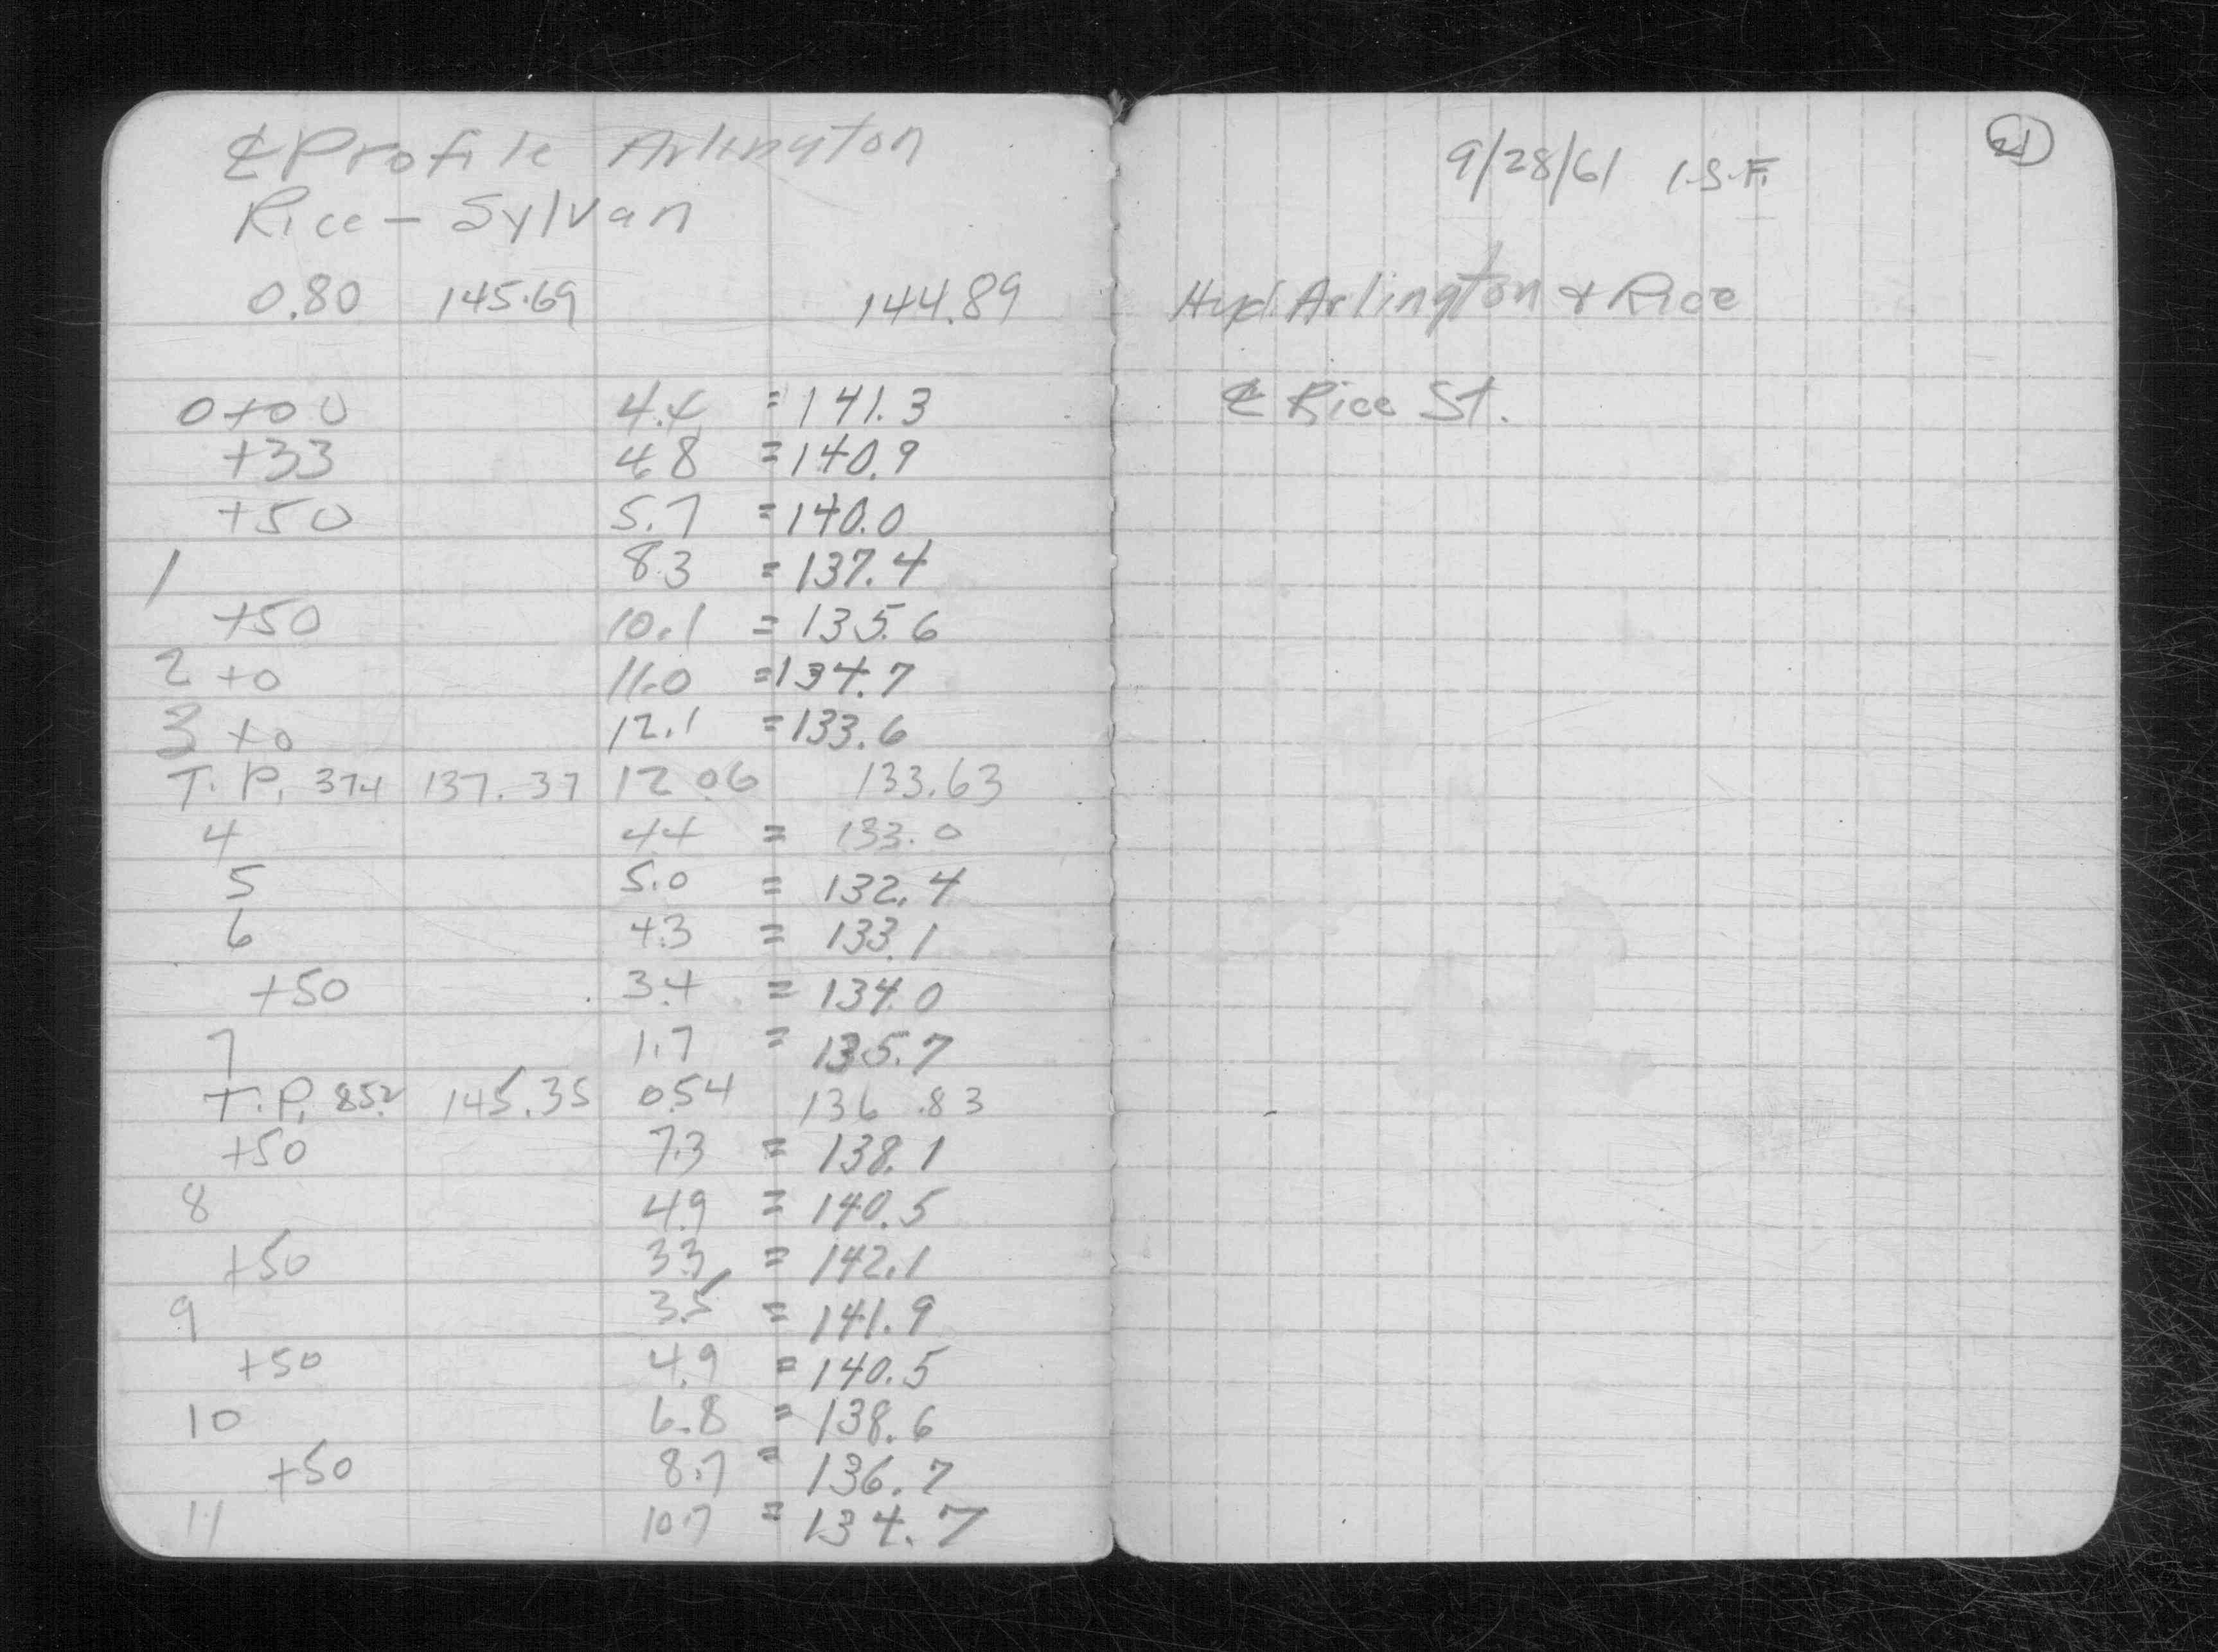 ℄ Profile Arlington
Rice - Sylvan
0.80 145.69 144.89
0+00 4.4 = 141.3
+33 4.8 = 140.9
+50 5.7 = 140.0
1 8.3 = 137.4
+50 10.1 = 135.6
2 +0 11.0 = 134.7
3 +0 12.1 = 133.6
T.P. 3.74 137.37 12.06 133.63
4 4.4 = 133.0
5 5.0 = 132.4
6 4.3 = 133.1
+50 3.4 = 134.0
7 1.7 = 135.7
T.P. 8.52 145.35 0.54 136.83
+50 7.3 = 138.1
8 4.9 = 140.5
+50 3.3 = 142.1
9 3.5 = 141.9
+50 4.9 = 140.5
10 6.8 = 138.6
+50 8.7 = 136.7
11 10.7 = 134.7
9/28/61 I.S.F.
Hyd. Arlington & Rice
℄ Rice St.